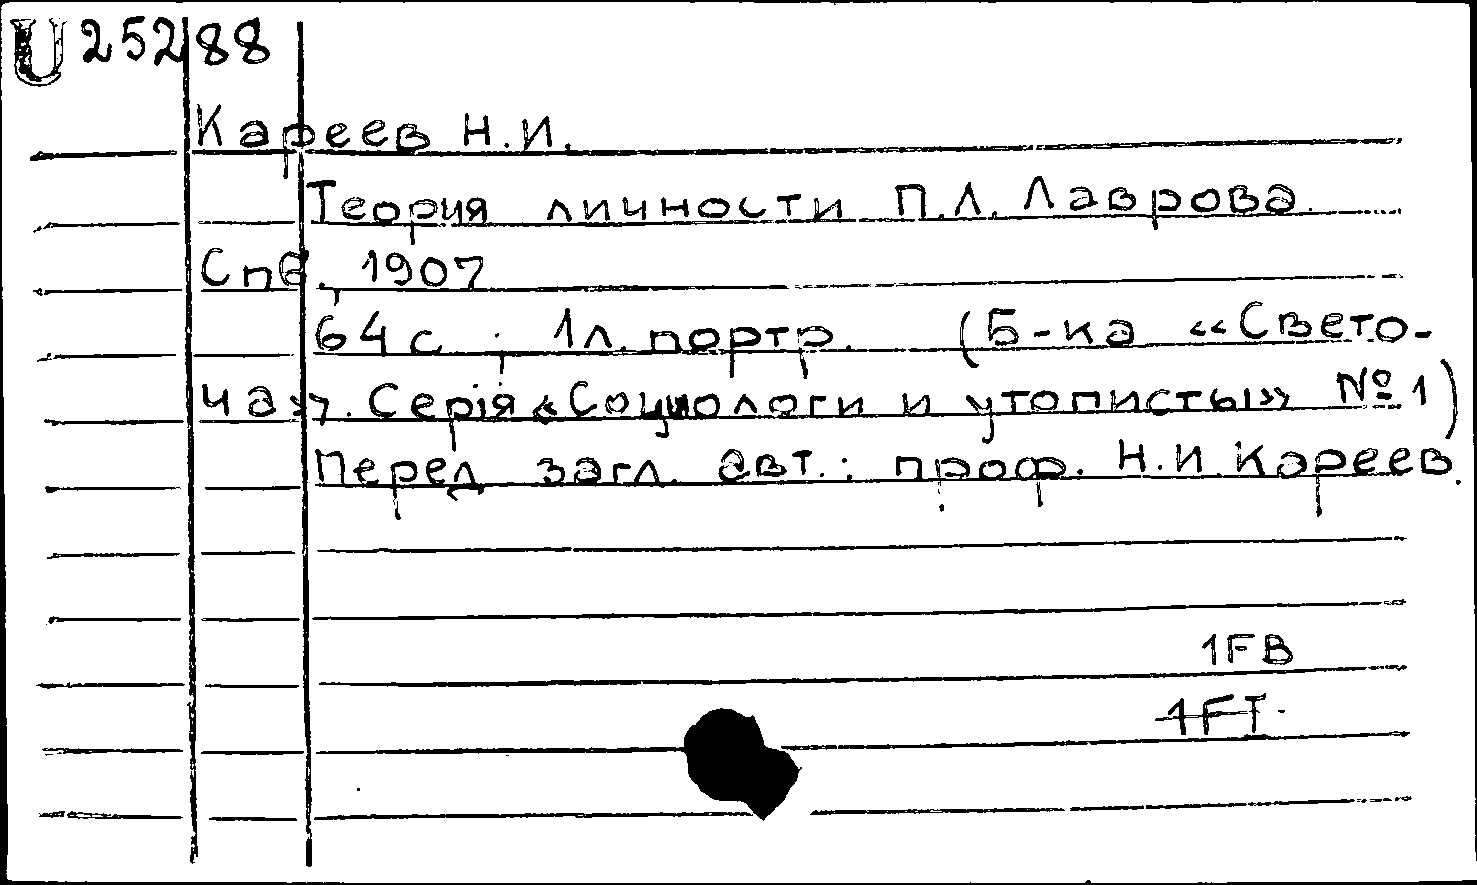 U 25288
Кареев Н.И.
Теория личности П.Л. Лаврова.
Спб., 1907
64 с ; 1 л. портр. (Б-ка «Свето-
ча». Серія «Социологи и утописты» № 1)
Перед загл. авт.: проф. Н.И. Кареев.
1FB
1FT.